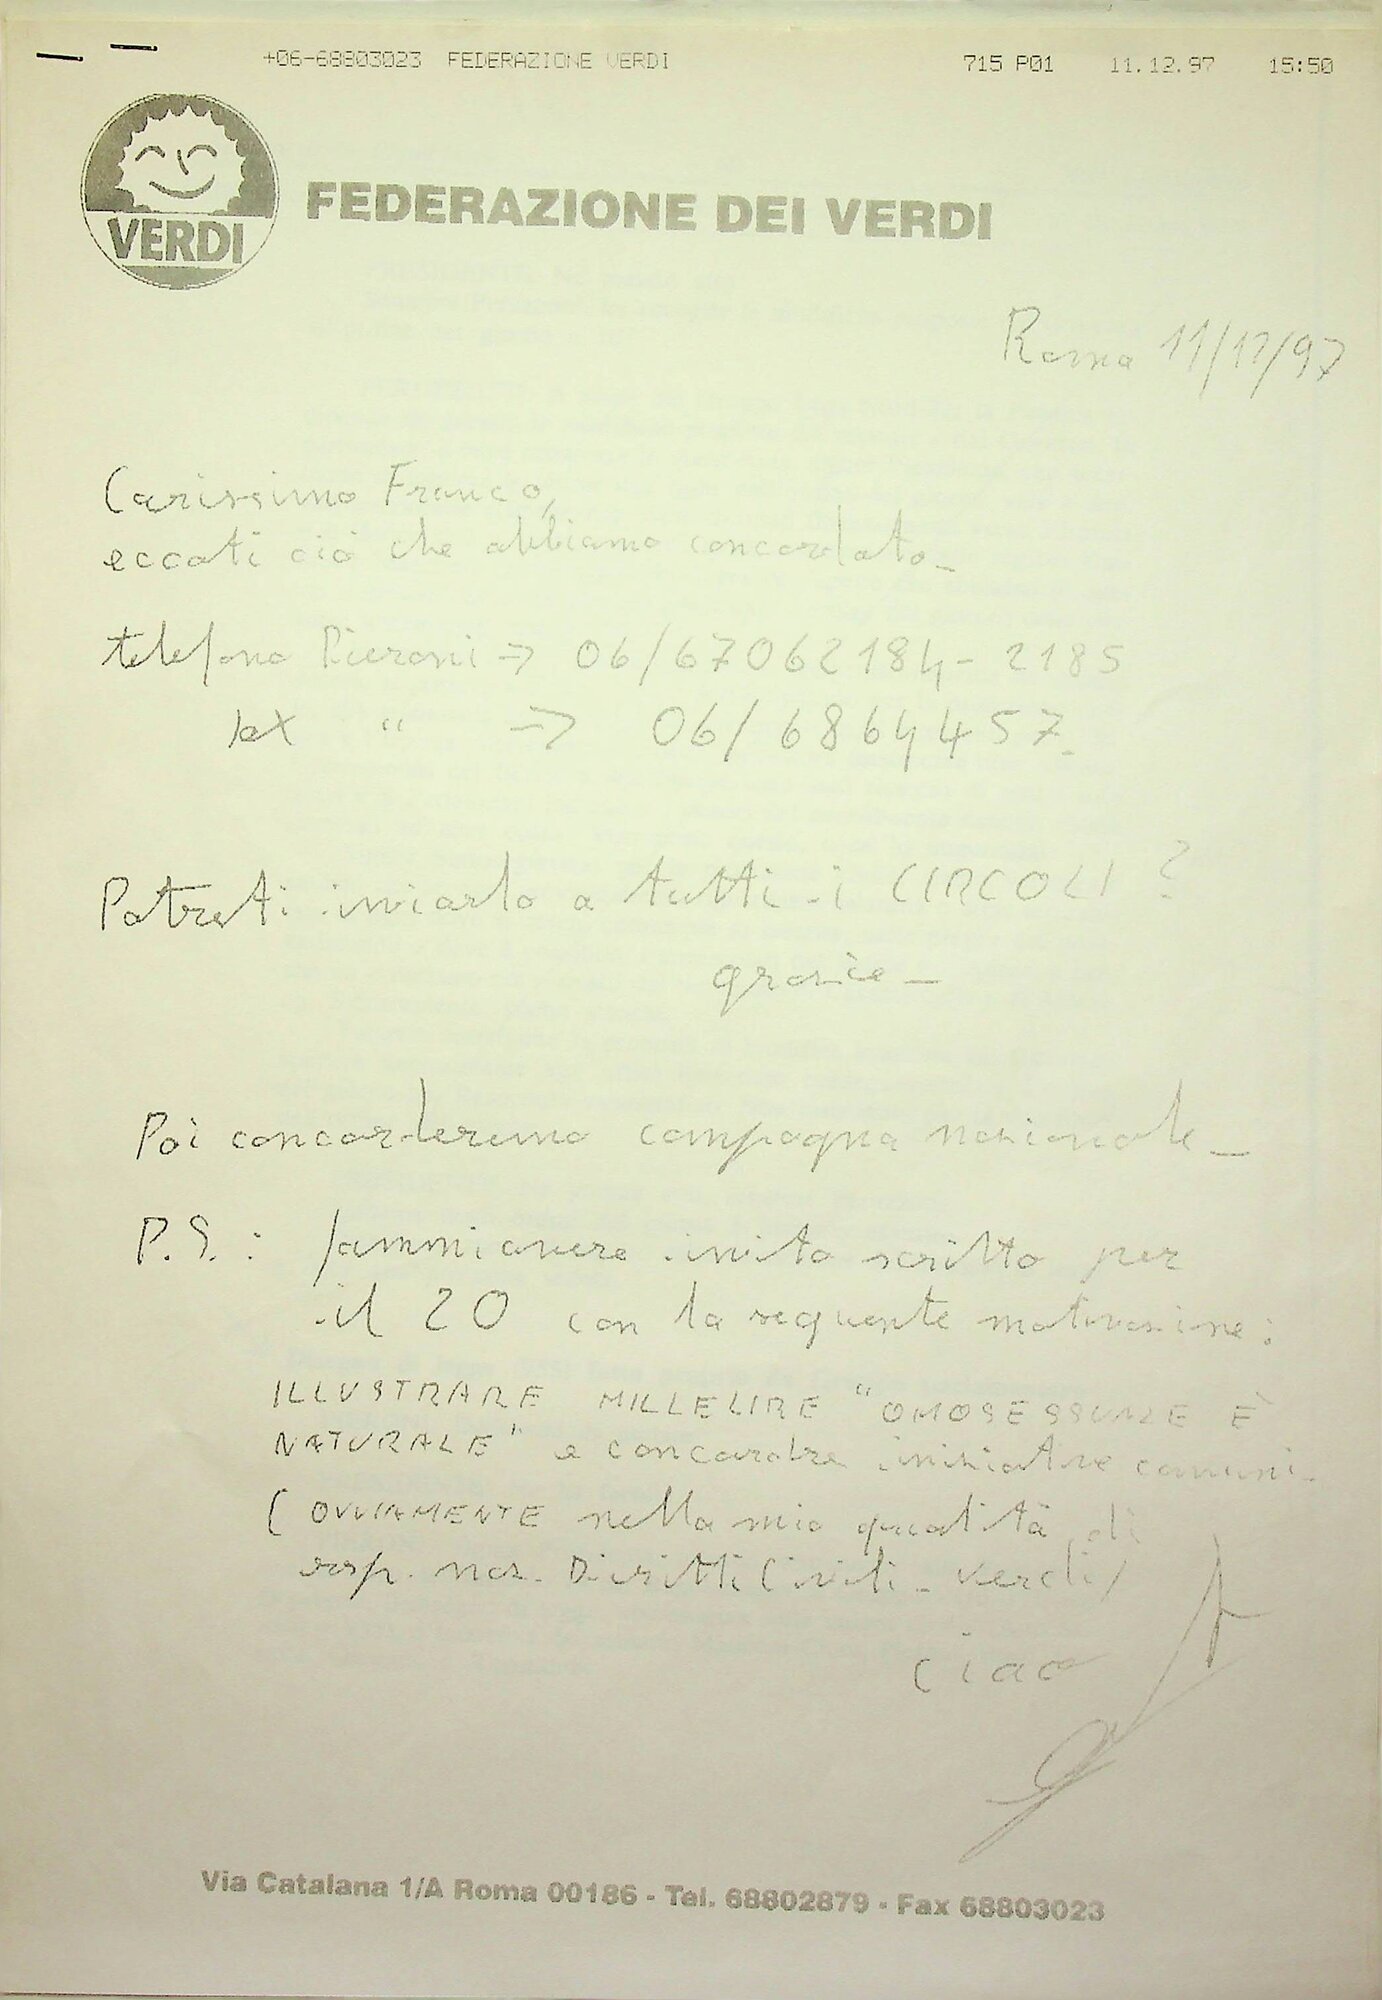 +06-68803023 FEDERAZIONE VERDI 715 P01 11.12.97 15:50
VERDI
FEDERAZIONE DEI VERDI
Roma 11/12/97
Carissimo Franco,
eccoti ciò che abbiamo concordato_
telefono Pieroni → 06/67062184-2185
fax " → 06/6864457_
Potresti inviarlo a tutti i CIRCOLI?
grazie_
Poi concorderemo campagna nazionale_
P.S.: fammi avere invito scritto per
il 20 con la seguente motivazione:
ILLUSTRARE MILLELIRE "OMOSESSUALE È
NATURALE" e concordare iniziative comuni_
(OVVIAMENTE nella mia qualità di
resp. naz. Diritti Civili - Verdi)
ciao
Via Catalana 1/A Roma 00186 - Tel. 68802879 - Fax 68803023